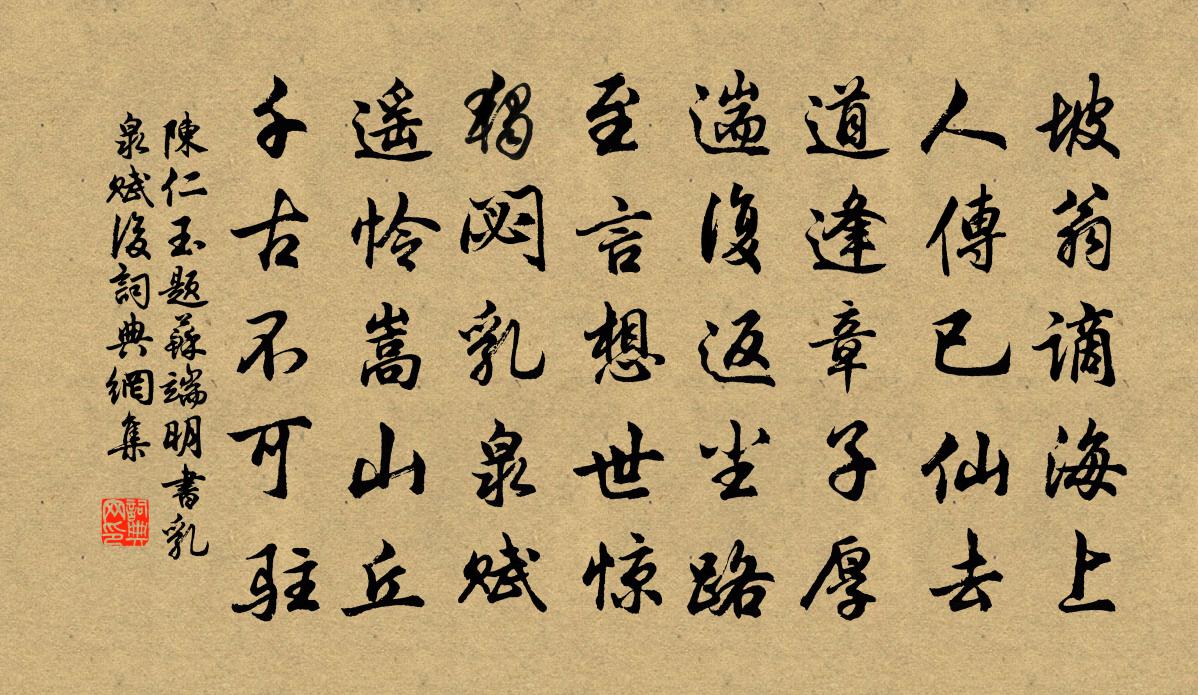 坡翁谪海上
人傳已仙去
道逢章子厚
遄復返尘路
至言想世惊
獨閟乳泉赋
遥怜嵩山丘
千古不可驻
陳仁玉题蘇端明書乳
泉赋後詞典網集
詞典
网印